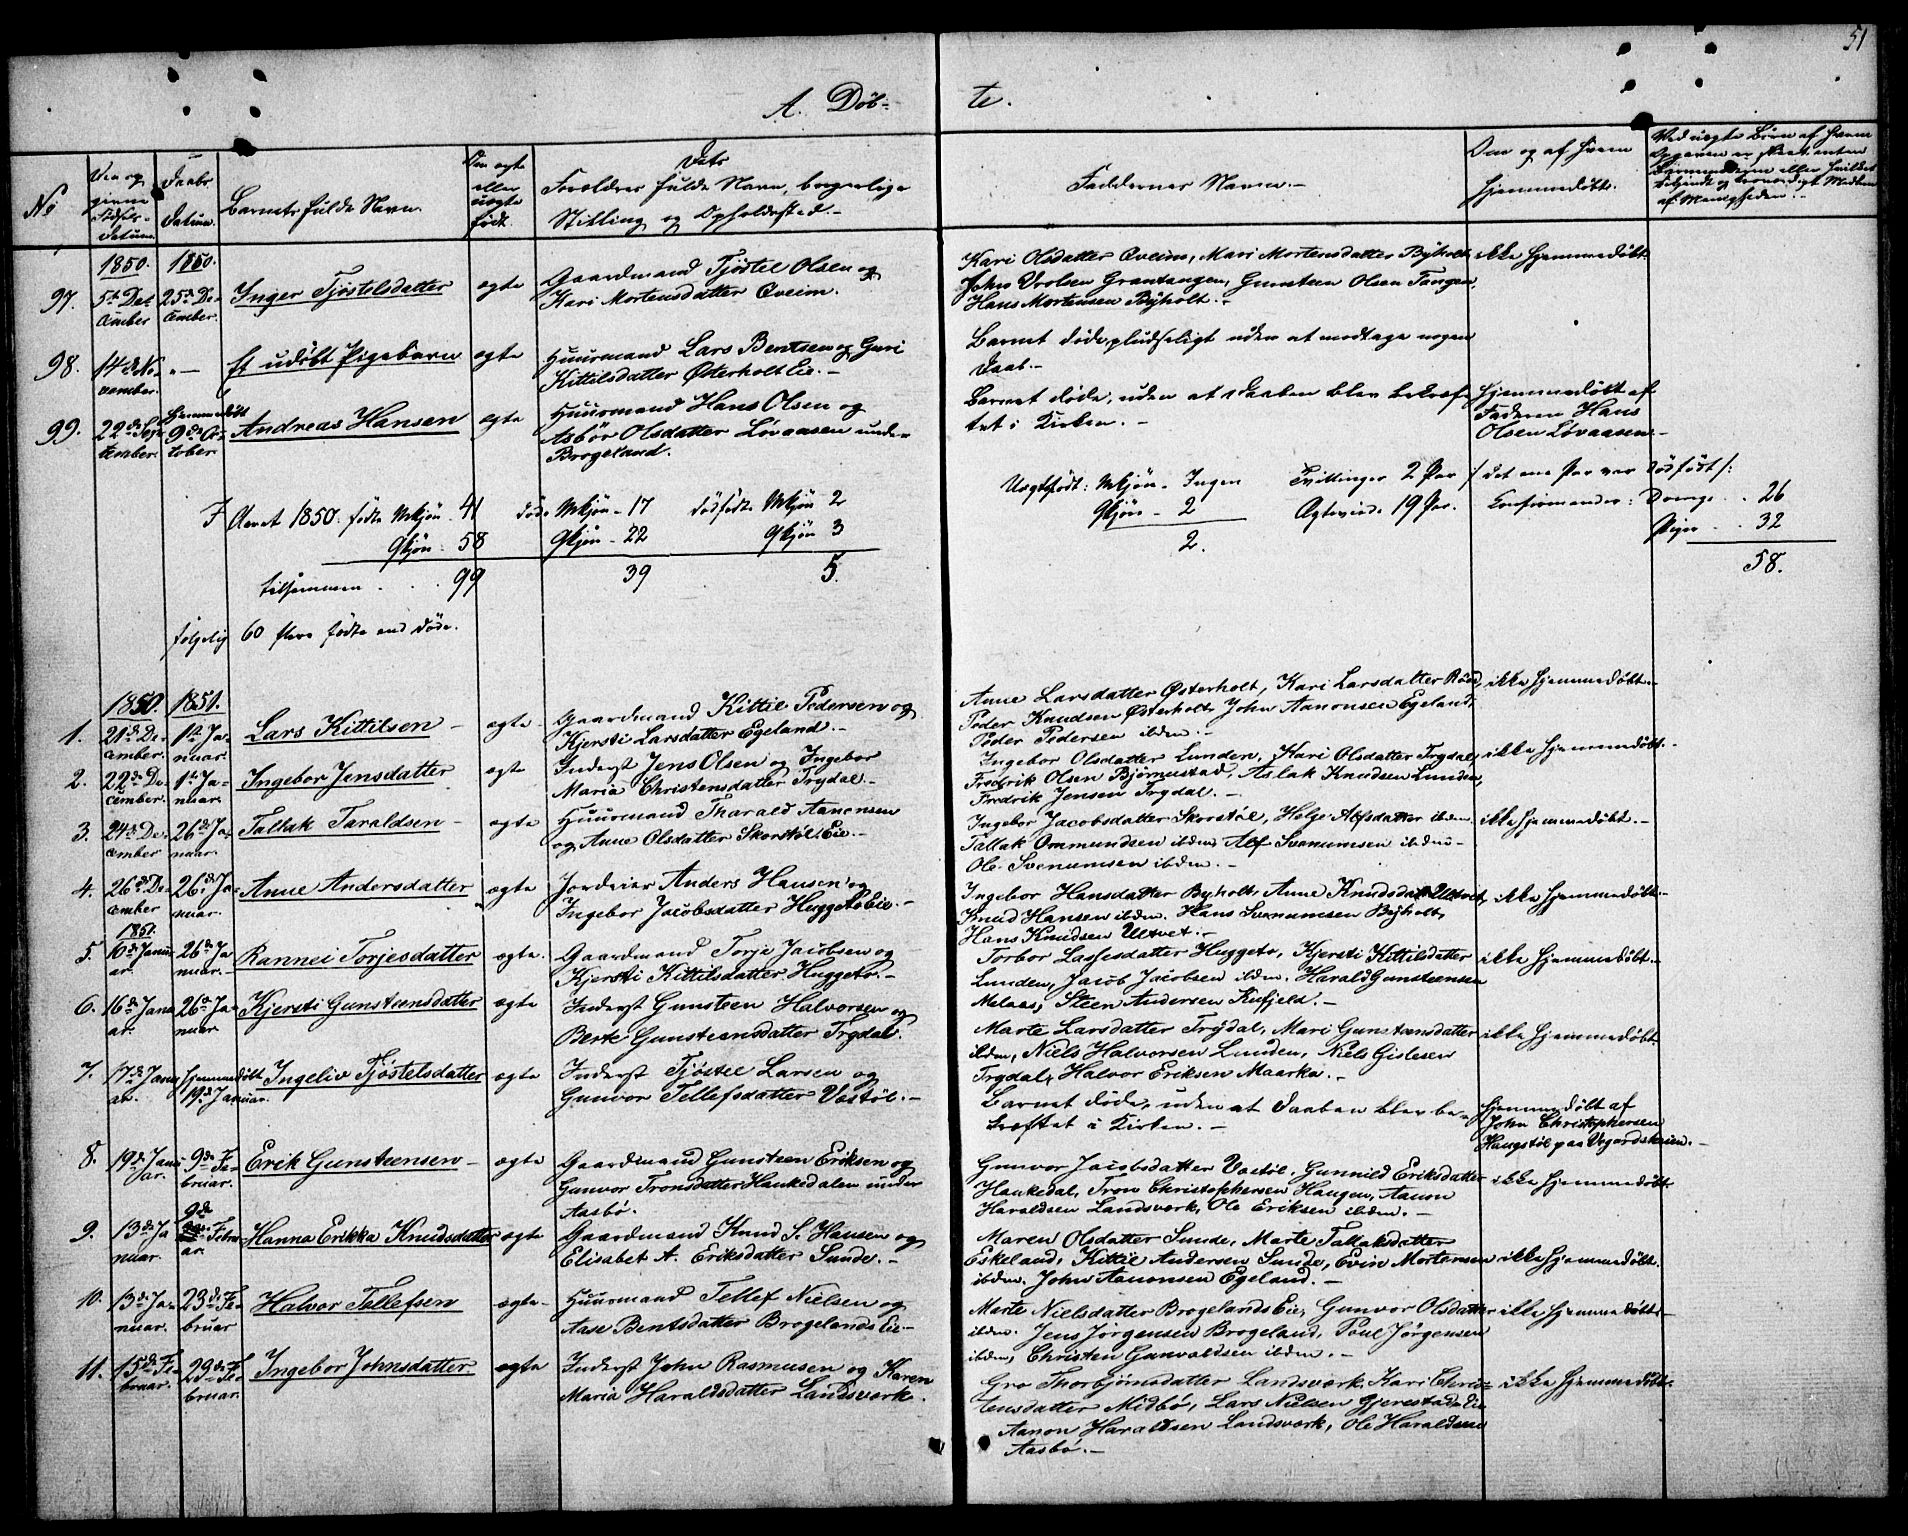 51
A. Døb-
te.
No
Den og
givne
Fødsels-
datum.
Daabs
Datum.
Barnets fulde Navn.
Om ægte
eller
uægte
født.
Forældres fulde Navn, borgerlige
Stilling og Opholdssted.-
Faddernes Navne.-
Om og af hvem
hjemmedøbt.
Ved uægte Børn af hvem
af Menigheden.-
1850. 1850.
97. 5te De- 25de De- Inger Tjøstelsdatter ægte Gaardmand Tjøstel Olsen og
cember cember. Kari Mortensdatter Qveim.
Kari Olsdatter Qveim, Mari Mortensdatter Byholt, ikke hjemmedøbt.
John Grantangen, Gunsteen Olsen Tangen,
Hans Mortensen Byholt.-
98. 14de No- "- Et udøbt Pigebarn ægte Huusmand Lars Bentsen og Guri
vember. Kittilsdatter Østerholt Eie.-
Barnet døde pludseligt uden at modtage nogen
Daab.-
99. 22de Sep- Hjemmedøbt 9de Oc- Andreas Hansen ægte Huusmand Hans Olsen og
tember. tober. Asbør Olsdatter Løvaasen under
Brogeland.
Barnet døde, uden at Daaben blev bekræf- Hjemmedøbt af
tet i Kirken.- Faderen Hans
Olsen Løvaasen.-
I Aaret 1850. fødte Mkjøn. 41 døde Mkjøn - 17 dødfødte Mkjøn 2
Qkjøn. 58 Qkjøn - 22 Qkjøn 3
tilsammen . . 99 39 5.
følgelig 60 flere fødte end døde.
Uægtefødt: Mkjøn - Ingen Tvillinger 2 Par /: det ene Par var dødfødt :/
Qkjøn - 2 Ægteviede 19 Par. Confirmander: Drenge . . 26
2. Piger . . 32
58.
1850. 1851.
1. 21de De- 1ste Ja- Lars Kittilsen - ægte- Gaardmand Kittil Pedersen og
cember. nuar. Kjersti Larsdatter Egeland.-
Anne Larsdatter Østerholt, Kari Larsdatter Røed, ikke hjemmedøbt.-
Peder Knudsen Østerholt, John Aanonsen Egeland,
Peder Pedersen ibdm.-
2. 22de De- 1ste Ja- Ingebor Jensdatter ægte Inderst Jens Olsen og Ingebor
cember. nuar. Maria Christensdatter Trydal.-
Ingebor Olsdatter Lunden, Kari Olsdatter Trydal, ikke hjemmedøbt.-
Fredrik Olsen Bjørnestad, Aslak Knudsen Lunden,
Fredrik Jensen Trydal.-
3. 24de De- 26de Ja- Tallak Taraldsen - ægte Huusmand Tharald Aanonsen
cember nuar. og Anne Olsdatter Skorstøl Eie.-
Ingebor Jacobsdatter Skorstøl, Helge Alfsdatter ibdm. ikke hjemmedøbt.-
Tallak Ommundsen ibdm, Alf Svenumsen ibdm-
Ole Svenumsen ibdm.-
4. 26de De- 26de Ja- Anne Andersdatter ægte Jordeier Anders Hansen og
cember nuar. Ingebor Jacobsdatter Huggetø Eie.-
Ingebor Hansdatter Byholt, Anne Knudsdatter Ultvet, ikke hjemmedøbt.-
Knud Hansen ibdm. Hans Svenumsen Byholt,
Hans Knudsen Ultvet.-
1851.
5. 6te Janu- 26de Ja- Rannei Torjesdatter ægte. Gaardmand Torje Jacobsen og
ar. nuar.- Kjersti Kittilsdatter Huggetø.-
Torbor Lassesdatter Huggetø, Kjersti Kittilsdatter ikke hjemmedøbt.-
Lunden, Jacob Jacobsen ibdm. Harald Gunsteensen
Melaas, Steen Andersen Kufjeld.-
6. 16de Janu- 26de Ja- Kjersti Gunsteensdatter ægte Inderst Gunsteen Halvorsen og
ar. nuar. Berte Gunsteensdatter Trydal.
Marte Larsdatter Trydal, Mari Gunsteensdatter ikke hjemmedøbt.
ibdm, Niels Halvorsen Lunden, Niels Gislesen
Trydal, Halvor Eriksen Maarka.-
7. 17de Janu- hjemmedøbt Ingeliv Tjøstelsdatter ægte Inderst Tjøstel Larsen og
ar. 19de Januar. Gunvor Tellefsdatter Vastøl.-
Barnet døde, uden at Daaben blev be- hjemmedøbt af
kræftet i Kirken.- John Christophersen
Haugstøl paa Vegardsheien.-
8. 19de Janu- 9de Fe- Erik Gunsteensen - ægte Gaardmand Gunsteen Eriksen og
ar. bruar. Gunvor Tronsdatter Haukedalen under
Aasbø.
Gunvor Jacobsdatter Vastøl, Gunnild Eriksdatter ikke hjemmedøbt.
Haukedal, Tron Christophersen Haugen, Aanon
Haraldsen Landsverk, Ole Eriksen ibdm.-
9. 13de Ja- 9de Febru- Hanna Erikka Knudsdatter ægte Gaardmand Knud S. Hansen og
nuar. ar. Elisabet A. Eriksdatter Sunde.-
Maren Olsdatter Sunde, Marte Tallaksdatter
Eskeland, Kittil Andersen Sunde, Evin Mortensen ikke hjemmedøbt.
ibdm. John Aanonsen Egeland.-
10. 13de Ja- 23de Fe- Halvor Tellefsen ægte- Huusmand Tellef Nielsen og
nuar. bruar Aase Bentsdatter Brogelands Eie.-
Marte Nielsdatter Brogelands Eie, Gunvor Olsdatter ikke hjemmedøbt.-
ibdm. Jens Jørgensen Brogeland, Poul Jørgensen
ibdm, Christen Gunvaldsen ibdm.-
11. 15de Fe- 23de Fe- Ingebor Johnsdatter ægte Inderst John Rasmusen og Karen
bruar. bruar. Maria Haraldsdatter Landsverk.
Gro Thorbjørnsdatter Landsverk, Kari Chris- ikke hjemmedøbt.
tensdatter Midbø, Lars Nielsen Gjerestads Eie
Aanon Haraldsen Landsverk, Ole Haraldsen
Aasbø.-